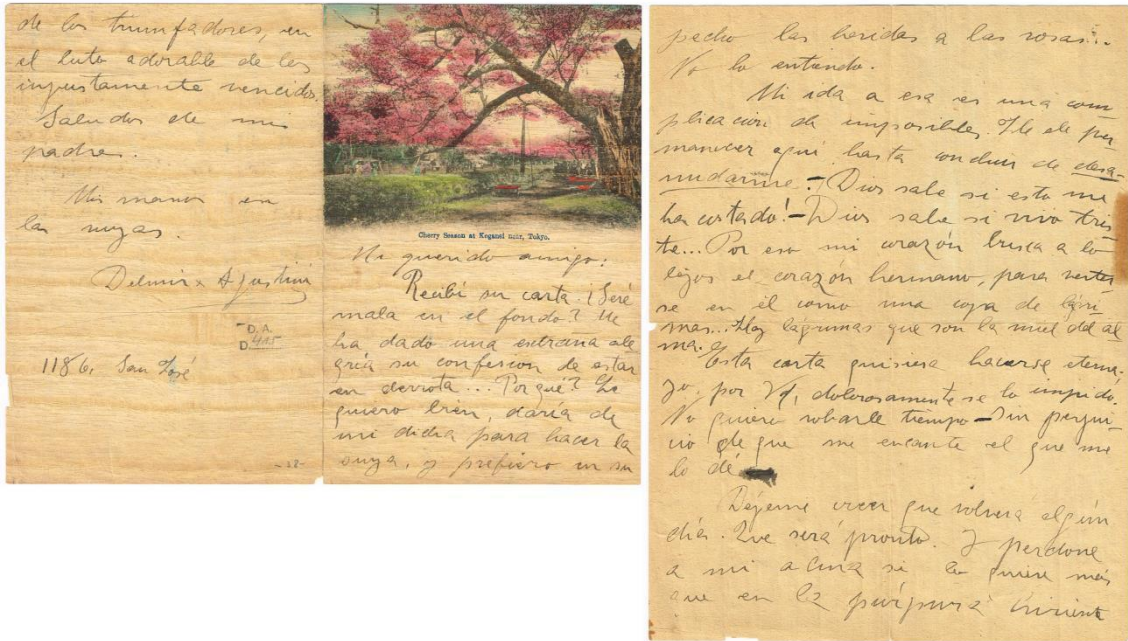 de los triunfadores, en
el luto adorable de los
injustamente vencidos
Saludos de mis
padres.
Mis manos en
las suyas.
Delmira Agustini
D. A.
D. 415
1186, San José
-28-
Cherry Season at Koganei near, Tokyo.
Mi querido amigo:
Recibí su carta. ¿Seré
mala en el fondo? Me
ha dado una extraña ale
gría su confesion de estar
en derrota... Por qué? Le
quiero bien, daría de
mi dicha para hacer la
suya, y prefiero en su
pecho las heridas a las rosas...
No lo entiendo.
Mi ida a esa es una com
plicación de imposibles. He de per
manecer aquí hasta concluir de desa-
nudarme.- ¡Dios sabe si esto me
ha costado! - Dios sabe si vivo tris
te... Por eso mi corazón busca a lo
lejos el corazón hermano, para verter
se en él como una copa de lágri
mas... Hay lágrimas que son la miel del al
ma.
Esta carta quisiera hacerse eterna.
Yo, por Vd, dolorosamente se lo impido.
No quiero robarle tiempo - Sin perjui-
cio de que me encante el que me
lo dé
Déjeme creer que volverá algún
día. Que será pronto. Y perdone
a mi alma si lo quiere más
que en la púrpura hiriente